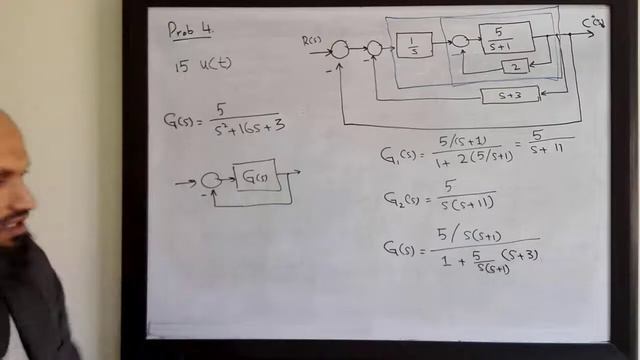 Prob 4.
15 u(t)
G(s) = 5 / s²+16s+3
G(s)
-
R(s)
1/s
5/s+1
C(s)
2
s+3
-
-
-
G₁(s) = 5/(s+1) / 1 + 2(5/s+1) = 5 / s+11
G₂(s) = 5 / s(s+11)
G(s) = 5/s(s+1) / 1 + 5/s(s+1) (s+3)